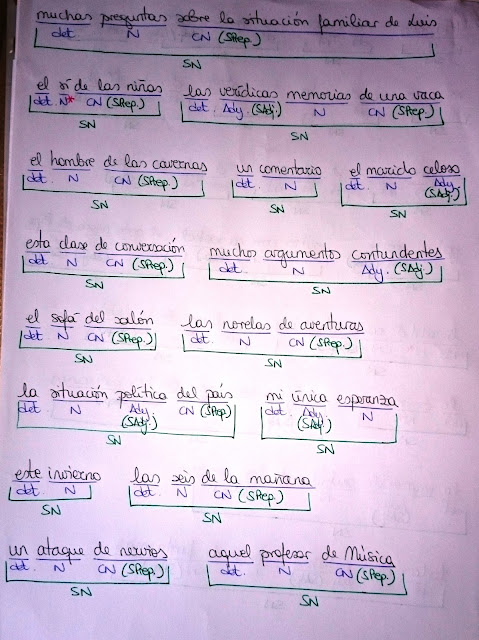 muchas preguntas sobre la situación familiar de Luis
det. N CN (SPrep.)
SN
el sí de las niñas las verídicas memorias de una vaca
det. N* CN (SPrep.) det. Adj. (SAdj.) N CN (SPrep.)
SN SN
el hombre de las cavernas un comentario el marido celoso
det. N CN (SPrep.) det. N det. N Adj.
(SAdj.)
SN SN SN
esta clase de conversación muchos argumentos contundentes
det. N CN (SPrep.) det. N Adj. (SAdj.)
SN SN
el sofá del salón las novelas de aventuras
det. N CN (SPrep.) det. N CN (SPrep.)
SN SN
la situación política del país mi única esperanza
det. N Adj. CN (SPrep) det. Adj. N
(SAdj.) (SAdj.)
SN SN
este invierno las seis de la mañana
det. N det. N CN (SPrep.)
SN SN
un ataque de nervios aquel profesor de Música
det. N CN (SPrep.) det. N CN (SPrep.)
SN SN